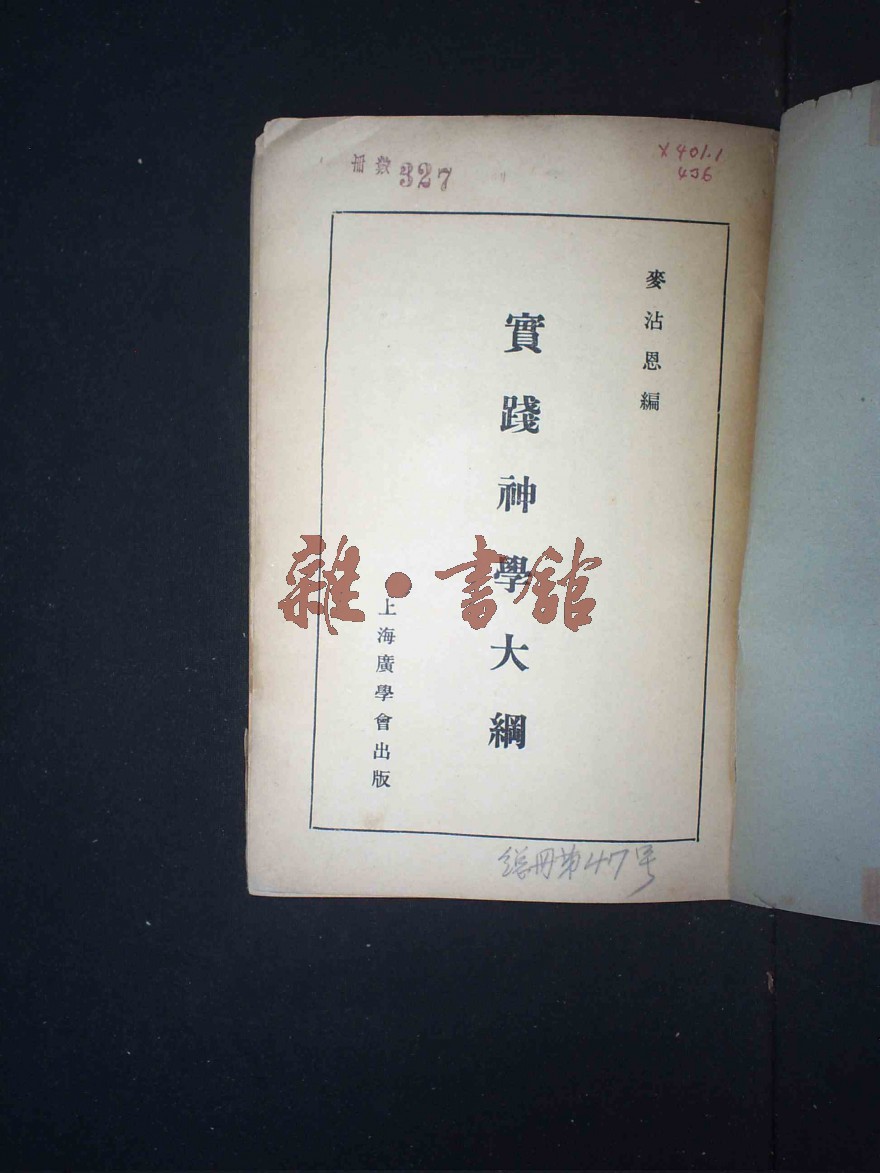 冊數 327
X401.1
456
麥沾恩編
實踐神學大綱
上海廣學會出版
雜·書館
總冊第47号